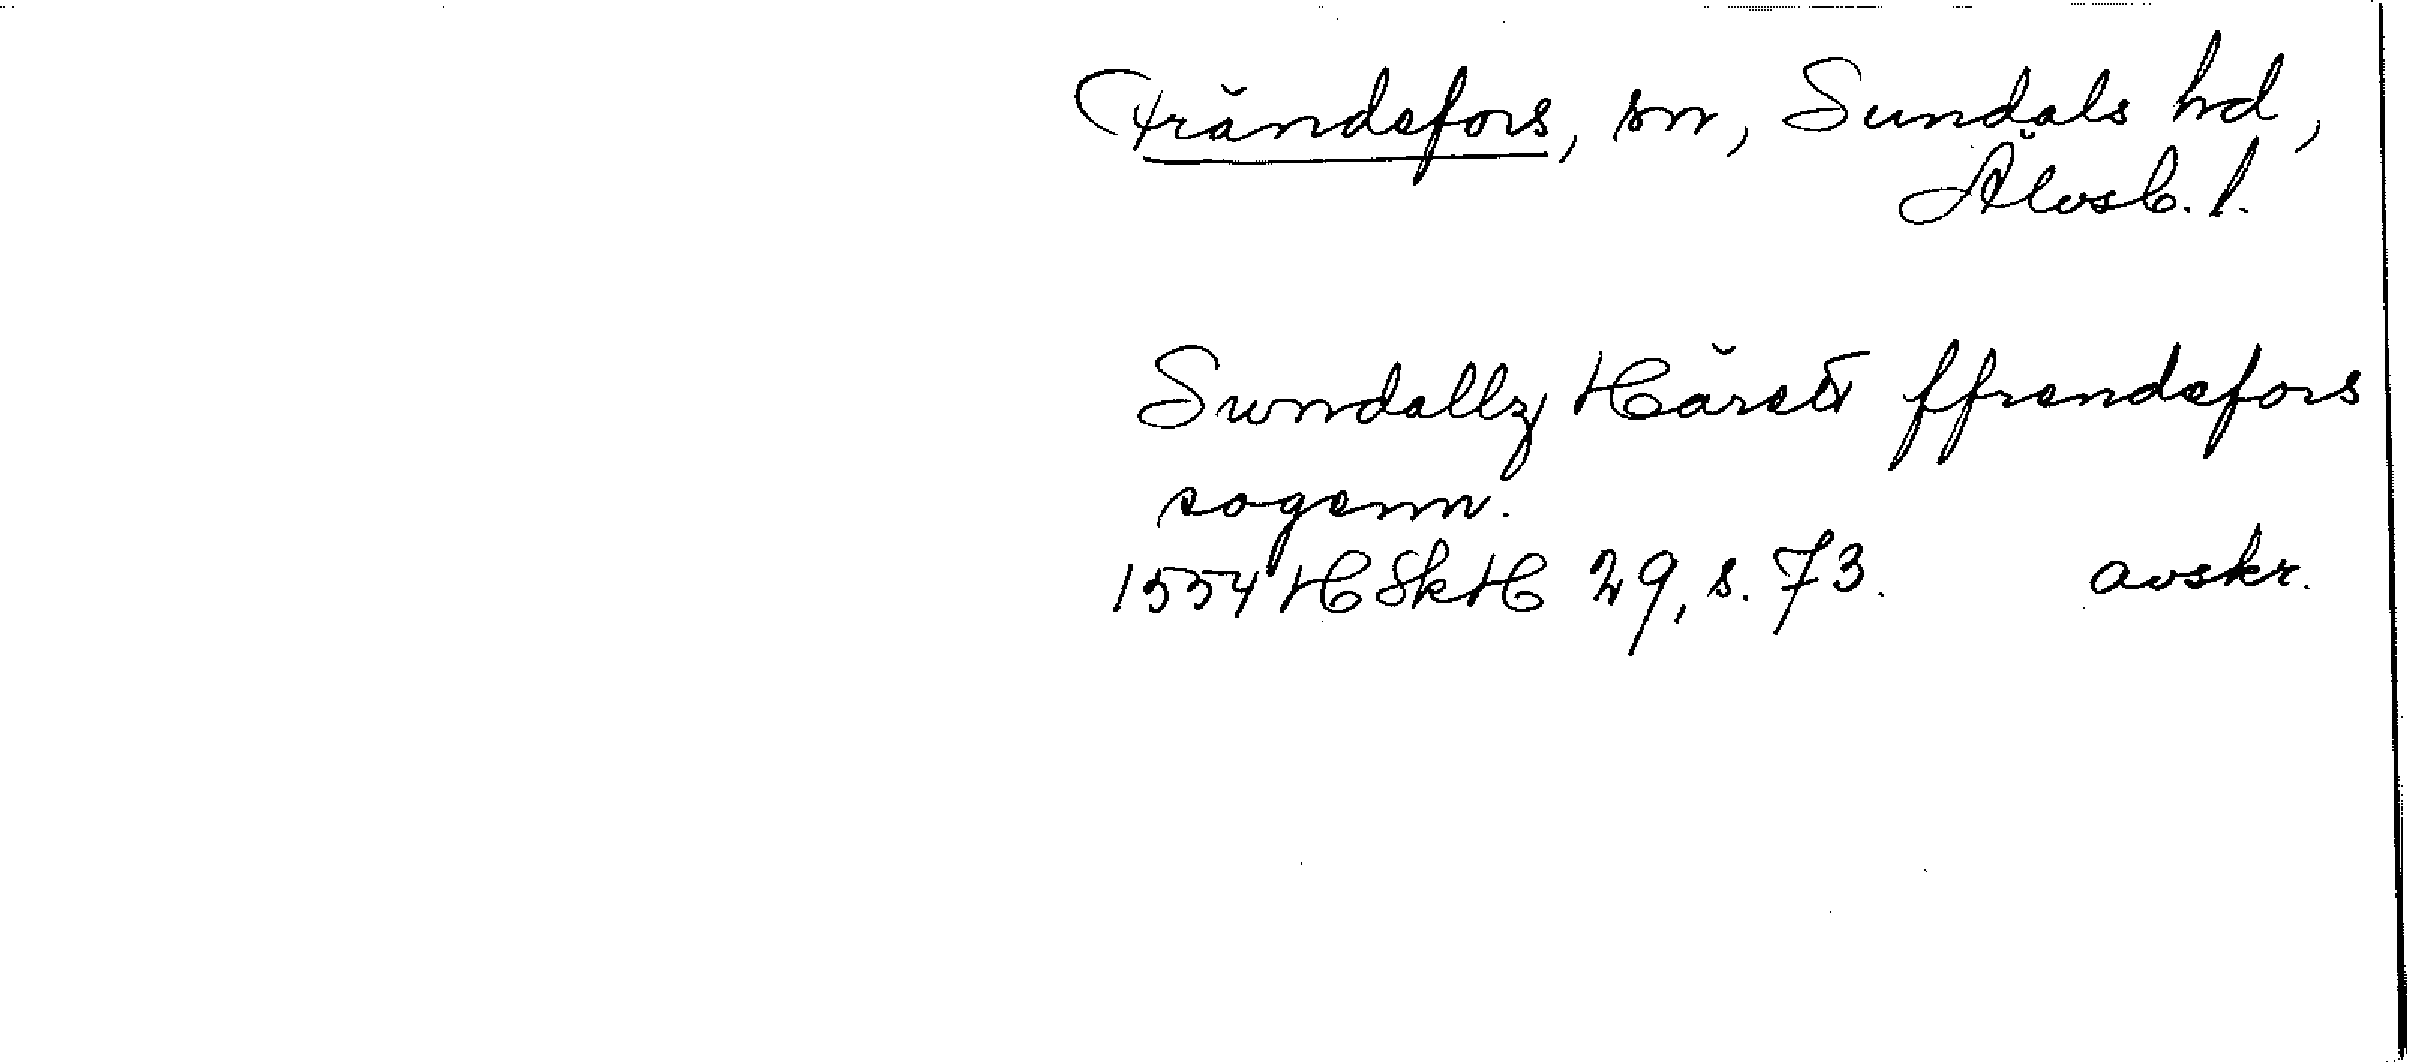 Frändefors, sn, Sundals hd,
Älvsb. l.
Swndallz Häret ffrendefors
sogenn.
1554 HSkH 29, s. 73. avskr.